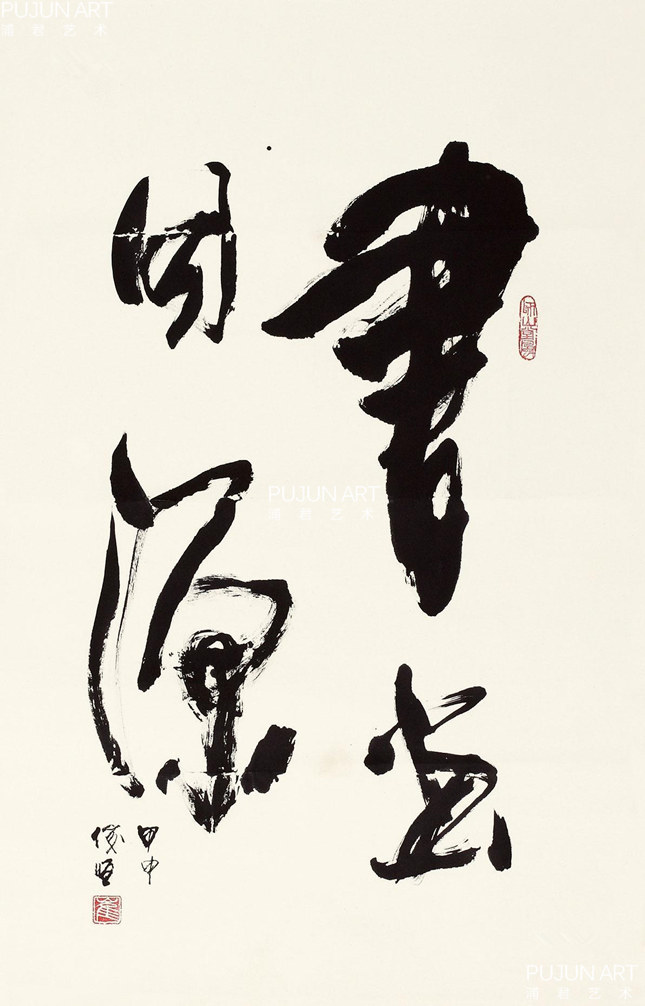 PUJUN ART
浦君艺术
書畫
同源
PUJUN ART
浦君艺术
甲申
俊恒
崔
PUJUN ART
浦君艺术